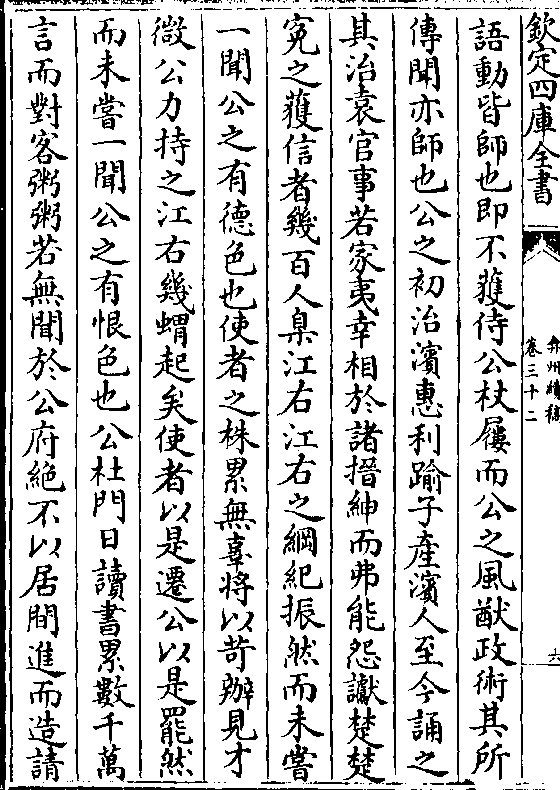 欽定四庫全書
弇州續稿
卷三十二
六
語動皆師也即不獲侍公杖屨而公之風猷政術其所
傳聞亦師也公之初治濱惠利踰子產濱人至今誦之
其治袁官事若家夷幸相於諸搢紳而弗能怨讞楚楚
寃之蒦信者幾百人臬江右江右之綱紀振然而未嘗
一聞公之有德色也使者之株累無辜將以苛辦見才
微公力持之江右幾蝟起矣使者以是遷公以是罷然
而未嘗一聞公之有恨色也公杜門日讀書累數千萬
言而對客粥粥若無聞於公府絶不以居間進而造請